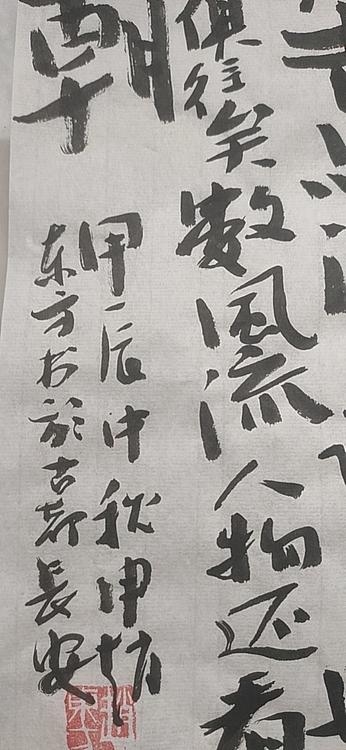 俱往矣数風流人物还看
朝
甲辰中秋申趙
东方书於古都長安